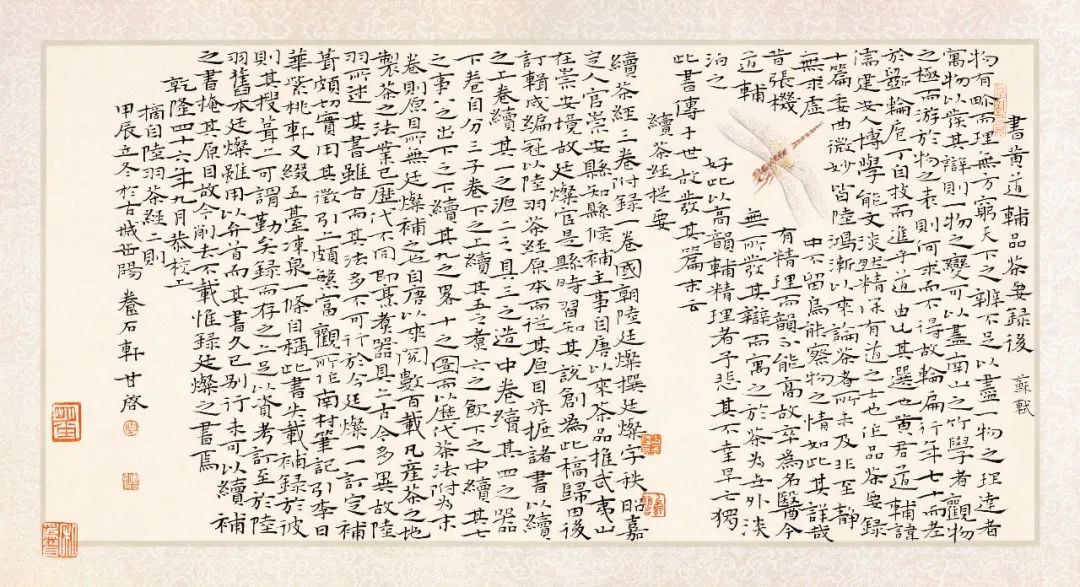 書黃道輔品茶要錄後 蘇軾
物有畛而理無方窮天下之辯不足以盡一物之理達者
寓物以發其辯則一物之變可以盡南山之竹學者觀物
之極而游於物之表則何求而不得故輪扁行年七十而老
於斵輪庖丁自技而進乎道由此其選也黃君道輔諱
濡建安人博學能文淡然精深有道之士也作品茶要錄
十篇委曲微妙皆陸鴻漸以來論茶者所未及非至靜
無求虛中不留烏能察物之情如此其詳哉
昔張機有精理而韻不能高故卒為名醫今
道輔無所發其辯而寓之於茶為世外淡
泊之好此以高韻輔精理者予悲其不幸早亡獨
此書傳于世故發其篇末云
續茶經提要
續茶經三卷附錄一卷國朝陸廷燦撰廷燦字秩昭嘉
定人官崇安縣知縣候補主事自唐以來茶品推武夷山
在崇安境故廷燦官是縣時習知其說創為此稿歸田後
訂輯成編冠以陸羽茶經原本而從其原目采摭諸書以續
之上卷續其一之源二之具三之造中卷續其四之器
下卷自分三子卷下之上續其五之煮六之飲下之中續其七
之事八之出下之下續其九之畧十之圖而以歷代茶法附為末
卷則原目所無廷燦補之也自唐以來閱數百載凡產茶之地
製茶之法業已歷代不同即烹煮器具亦古今多異故陸
羽所述其書雖古而其法多不可行於今廷燦一一訂定補
葺頗切實用其徵引亦頗繁富觀所作南村筆記引李日
華紫桃軒又綴五臺凍泉一條自稱此書失載補錄於彼
則其搜葺亦可謂勤矣錄而存之亦足以資考訂至於陸
羽舊本廷燦雖用以弁首而其書久已別行未可以續補
之書掩其原目故今刪去不載惟錄廷燦之書焉
乾隆四十六年九月恭校上
摘自陸羽茶經二則
甲辰立冬於古城酉陽 卷石軒 甘啓